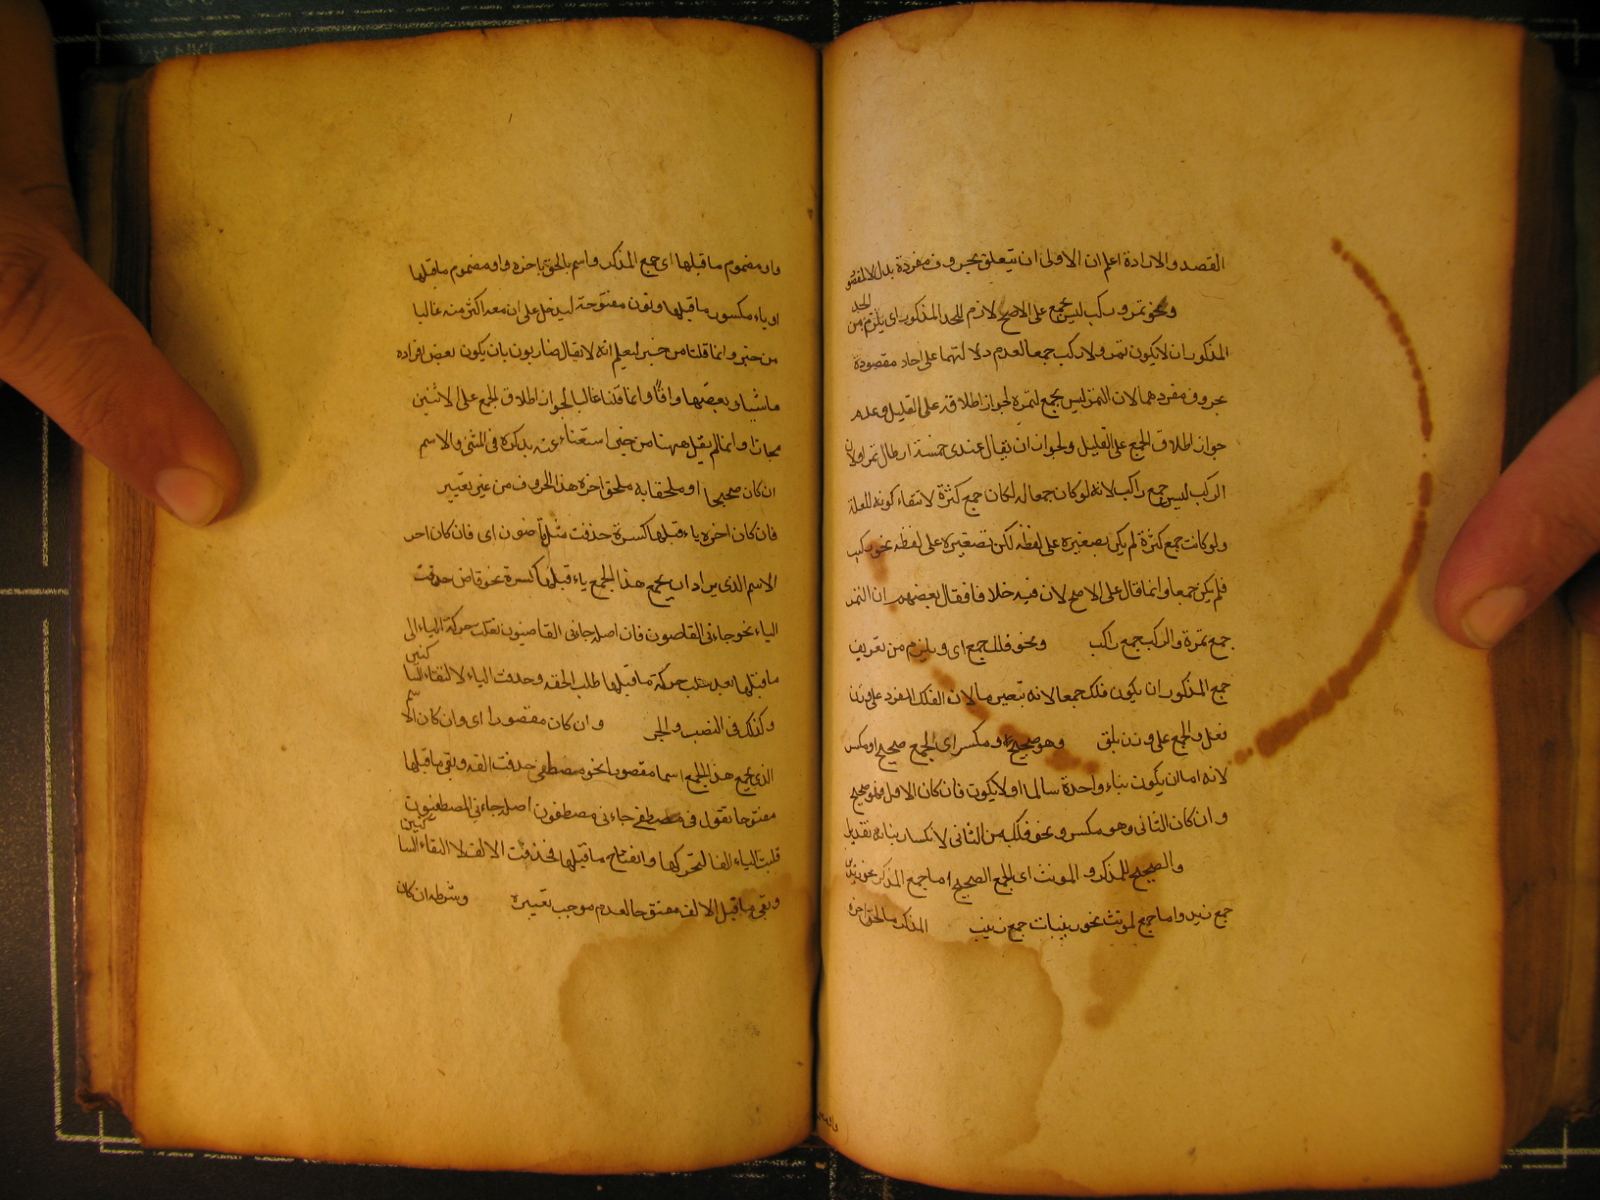 القصد والارادة اعلم ان الاولى ان يتعلق بحروف مفردة بدل المقصود
ونحو تمر وركب ليس بجمع على الاصح لازم للحد المذكور اى يلزم من الحد
المذكور ان لا يكون تمر ولا ركب جمعا لعدم دلالتهما على احاد مقصودة
بحروف مفردهما لان التمر ليس بجمع لتمرة لجواز اطلاقه على القليل وعدم
جواز اطلاق الجمع على القليل ولجواز ان يقال عندى خمسة ارطال تمر ولان
الركب ليس جمع راكب لانه لو كان جمعا له لكان جمع كثرة لانتفاء كونه للقلة
ولو كانت جمع كثرة لم يكن تصغيره على لفظه لكن تصغيره على لفظه نحو ركيب
فلم يكن جمعا وانما قال على الاصح لان فيه خلافا فقال بعضهم ان التمر
جمع تمرة والركب جمع راكب ونحو فلك جمع اى ويلزم من تعريف
جمع المذكور ان يكون فلك جمعا لانه بتغيير ما لان الفلك المفرد على وزن
فعل والجمع على وزن وهو صحيح ومكسر اى الجمع صحيح او مكسر
لانه اما ان يكون بناء واحدة سالما او لا يكون فان كان الاول فهو صحيح
وان كان الثانى وهو مكسر ونحو فلك من الثانى لانكسار بنائه تقديرا
والصحيح لمذكر و المونث اى الجمع الصحيح اما جمع المذكر نحو زيدين
جمع زيد واما جمع لمونث نحو زينبات جمع زينب المذكر ما لحق اخره
واو مضموم ما قبلها اى جمع المذكر واسم ما لحق باخره واو مضموم ما قبلها
او ياء مكسور ما قبلها ونون مفتوحة ليدل على ان معه اكثر منه غالبا
من جنسه وانما قلنا من جنسه ليعلم انه لا يقال ضاربون بان يكون بعض افراده
وبعضها وانما قلنا غالبا لجواز اطلاق الجمع على الاثنين
مجازا وانما لم يقل ههنا من جنسه استغناء عنه بذكره فى المثنى والاسم
ان كان صحيحا او ملحقا به ملحق اخره هذا الحروف من غير تغيير
فان كان اخره ياء قبلها كسرة حذفت مثل قاضون اى فان كان اخر
الاسم الذى يراد ان يجمع هذا الجمع ياء قبلها كسرة نحو قاض حذفت
الياء نحو جاءنى القاضون فان اصله جاءنى القاضيون نقلت حركة الياء الى
ما قبلها بعد سلب حركة ما قبلها طلب الخفة وحذفت الياء لالتقاء الساكنين
وكذلك فى النصب والجر وان كان مقصورا اى وان كان الاسم
الذى يجمع هذا الجمع اسما مقصورا نحو مصطفى حذفت الفه وبقى ما قبلها
مفتوحا تقول فى مصطفى جاءنى مصطفون اصله جاءنى المصطفيون
قلبت الياء الفا لتحركها وانفتاح ما قبلها فحذفت الالف لالتقاء الساكنين
وبقى ما قبل الالف مفتوحا لعدم موجب تغييره وشرطه ان كان